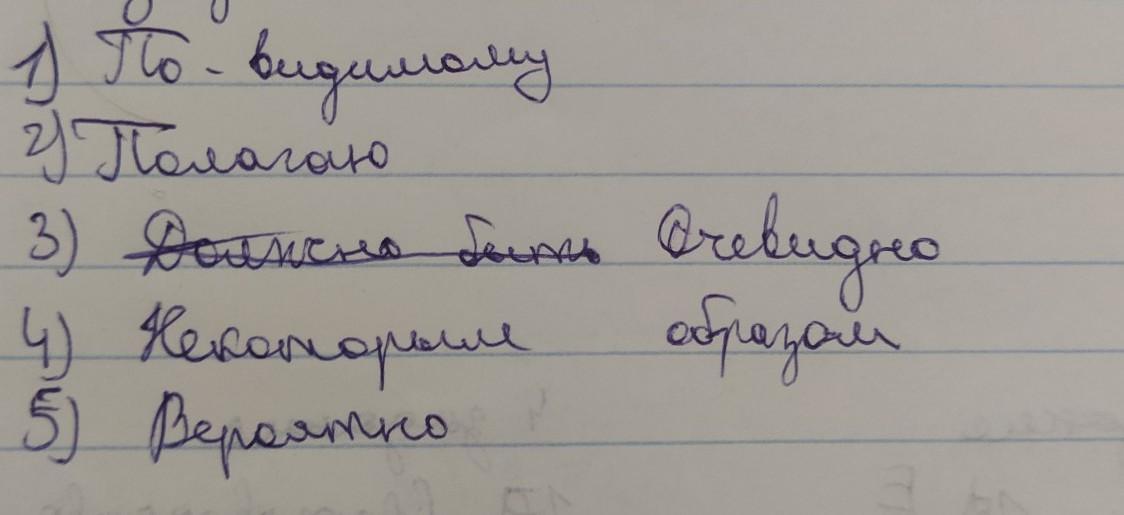 1) По-видимому
2) Полагаю
3) Должно быть Очевидно
4) Некоторым образом
5) Вероятно